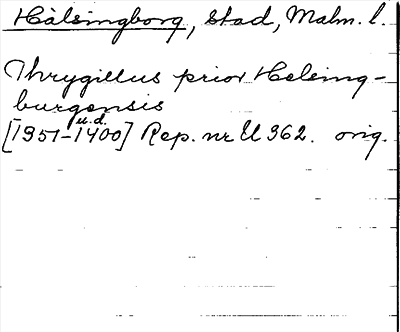 Hälsingborg, stad, Malm. l.
Thrygillus prior Helsing-
burgensis
u.d.
[1351-1400] Rep. nr U 362. orig.